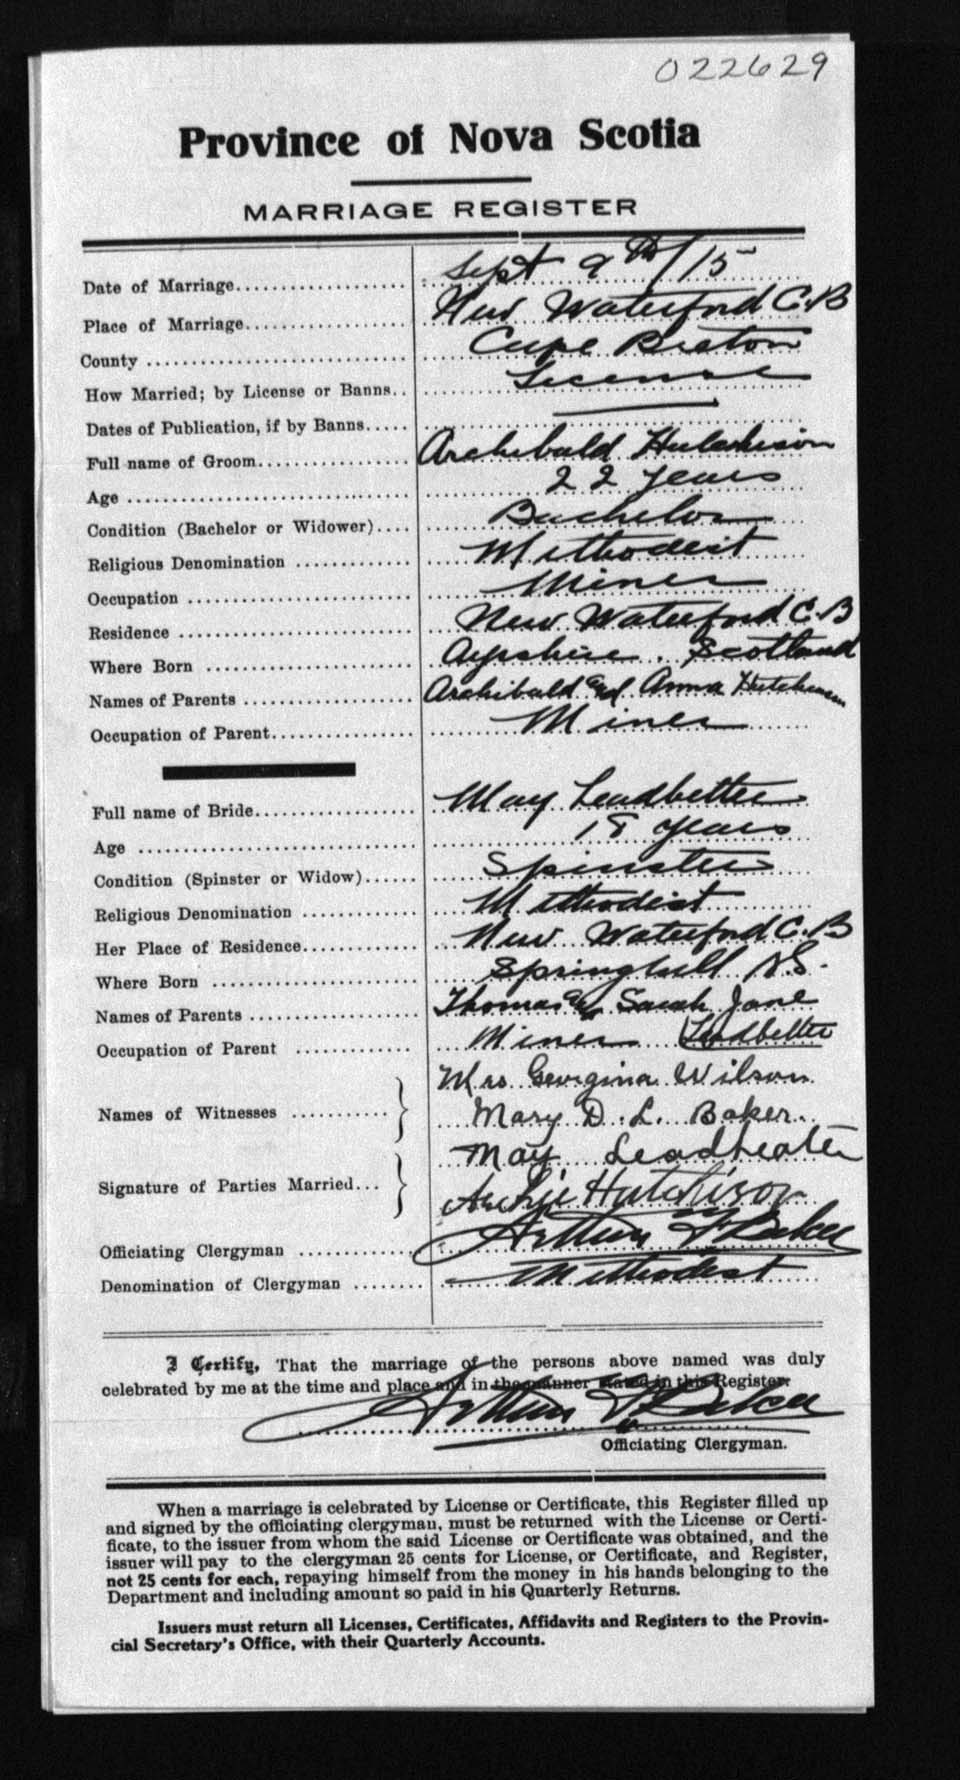 022629
Province of Nova Scotia
MARRIAGE REGISTER
Date of Marriage Sept 9th/15
Place of Marriage New Waterford C.B
County Cape Breton
How Married; by License or Banns License
Dates of Publication, if by Banns —
Full name of Groom Archibald Hutchison
Age 22 years
Condition (Bachelor or Widower) Bachelor
Religious Denomination Methodist
Occupation Miner
Residence New Waterford C.B
Where Born Ayrshire. Scotland
Names of Parents Archibald and Anna Hutchison
Occupation of Parent Miner
Full name of Bride May Leadbetter
Age 18 years
Condition (Spinster or Widow) Spinster
Religious Denomination Methodist
Her Place of Residence New Waterford C.B
Where Born Springhill N.S.
Names of Parents Thomas & Sarah Jane
Occupation of Parent Miner Leadbetter
Names of Witnesses Mrs Georgina Wilson
Mary D. L. Baker.
Signature of Parties Married May Leadbeater
Archie Hutchison
Officiating Clergyman Arthur F Baker
Denomination of Clergyman Methodist
I Certify, That the marriage of the persons above named was duly
celebrated by me at the time and place and in the manner stated in this Register.
Arthur F Baker
Officiating Clergyman.
When a marriage is celebrated by License or Certificate, this Register filled up
and signed by the officiating clergyman, must be returned with the License or Certi-
ficate, to the issuer from whom the said License or Certificate was obtained, and the
issuer will pay to the clergyman 25 cents for License, or Certificate, and Register,
not 25 cents for each, repaying himself from the money in his hands belonging to the
Department and including amount so paid in his Quarterly Returns.
Issuers must return all Licenses, Certificates, Affidavits and Registers to the Provin-
cial Secretary's Office, with their Quarterly Accounts.